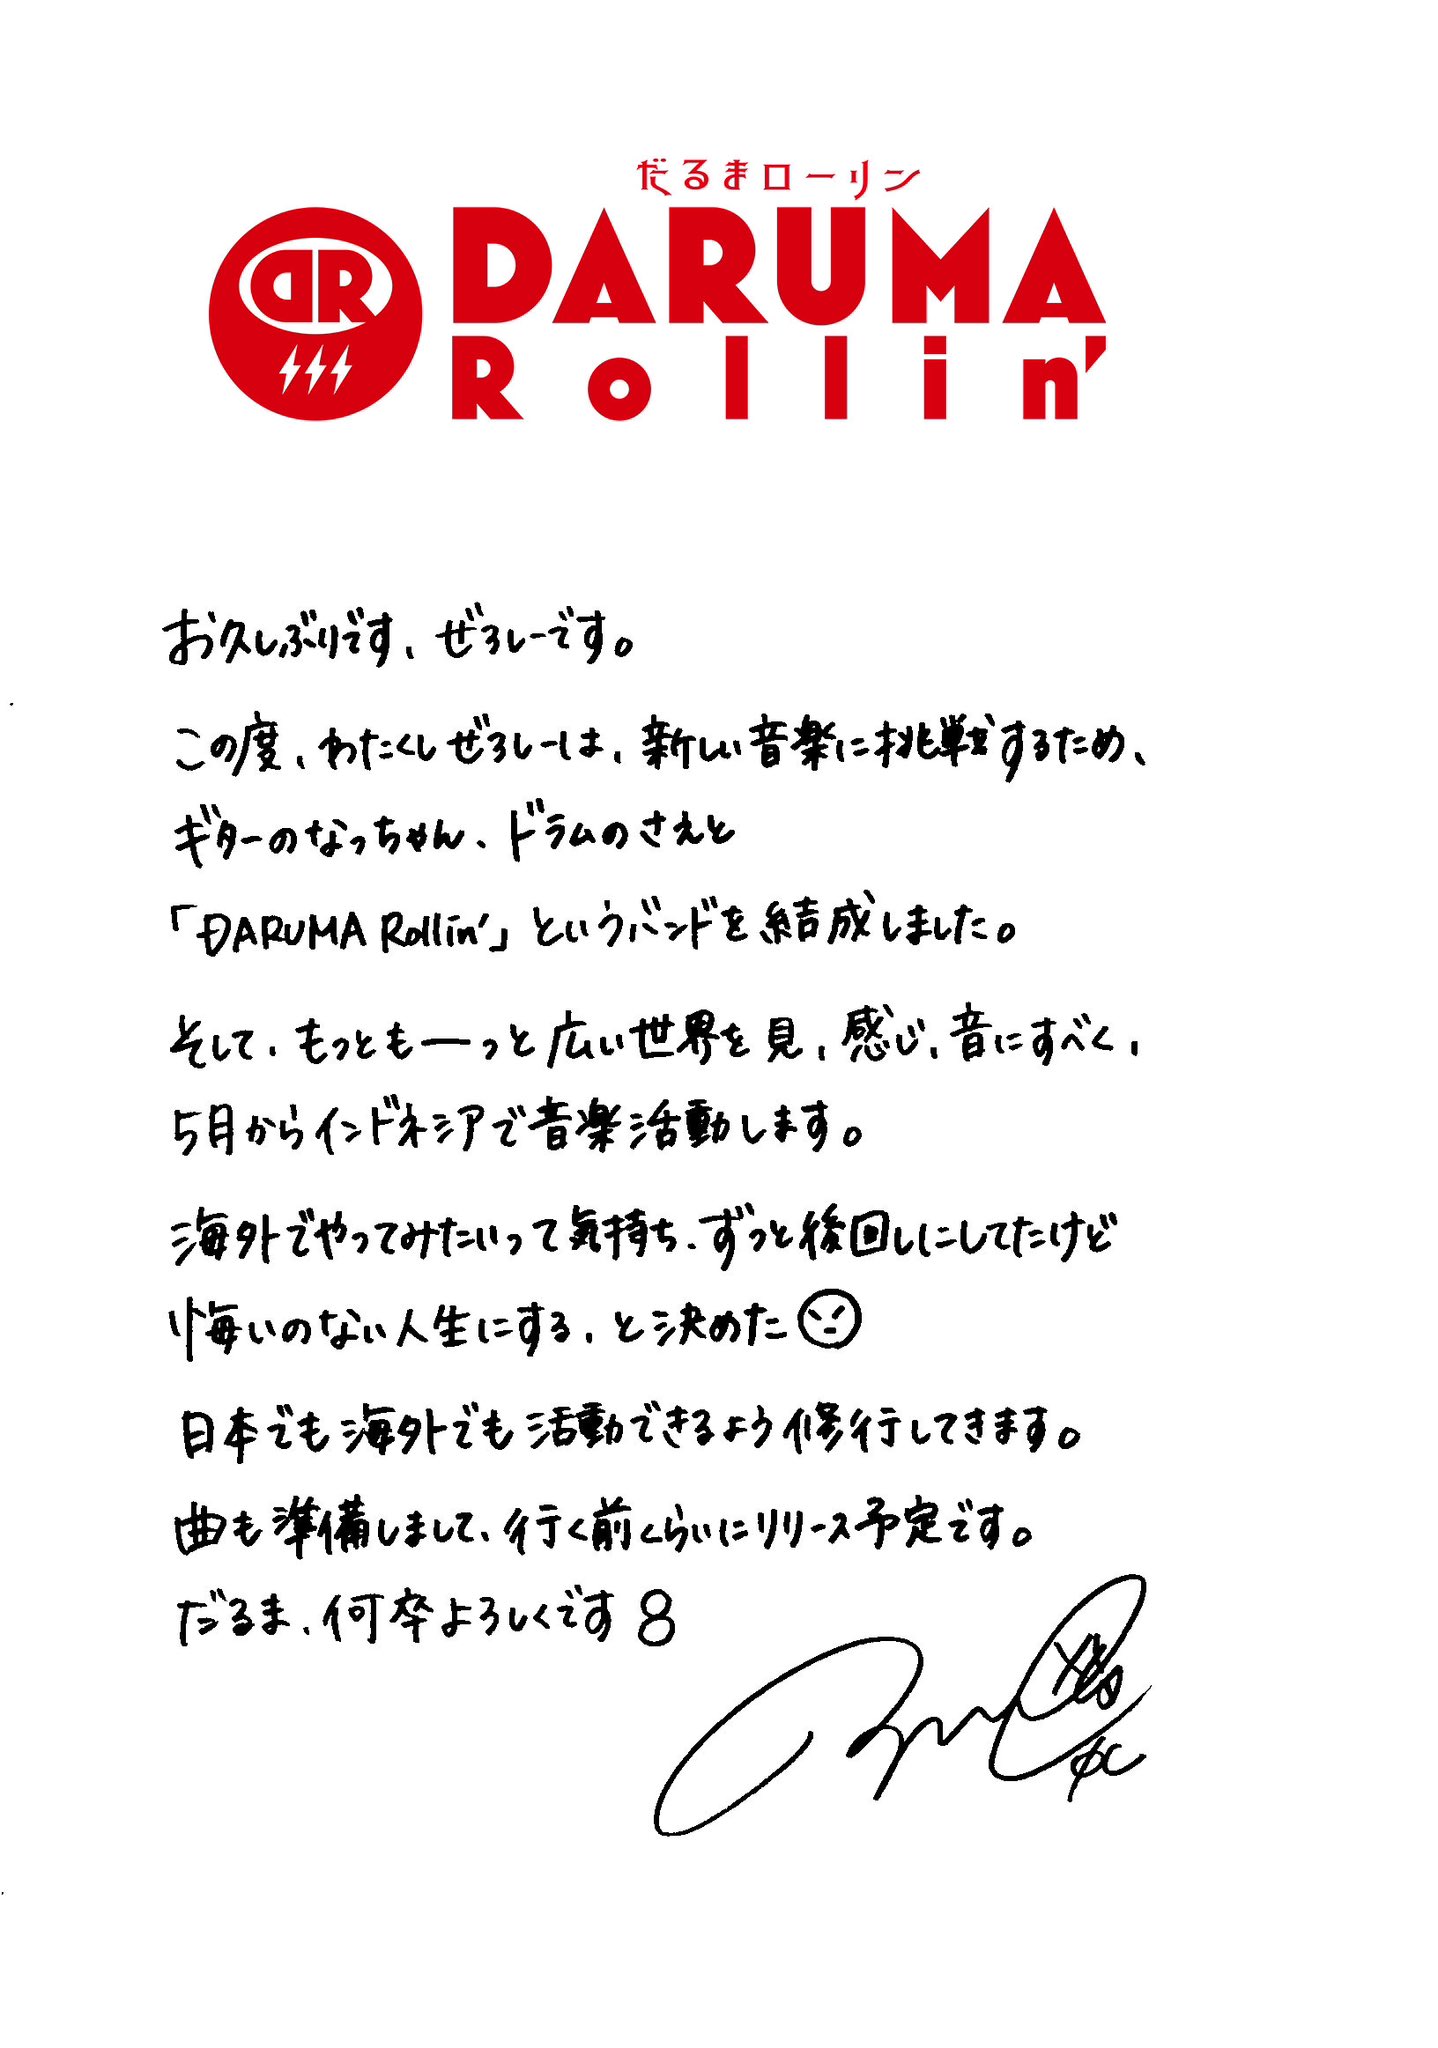 だるまローリン
DR DARUMA
Rollin'
お久しぶりです、ぜろしーです。
この度、わたくしぜろしーは、新しい音楽に挑戦するため、
ギターのなっちゃん、ドラムのさえと
「DARUMA Rollin'」というバンドを結成しました。
そして、もっともーっと広い世界を見、感じ、音にすべく、
5月からインドネシアで音楽活動します。
海外でやってみたいって気持ち、ずっと後回しにしてたけど
悔いのない人生にする、と決めた
日本でも海外でも活動できるよう修行してきます。
曲も準備しまして、行く前くらいにリリース予定です。
だるま、何卒よろしくです